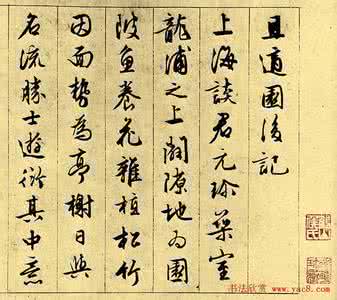 且適園後記
上海談君元珍築室
龍浦之上闢隙地為園
陂魚養花雜植松竹
因面勢為亭榭日與
名流勝士遊衍其中意
书法欣赏
www.yac8.com